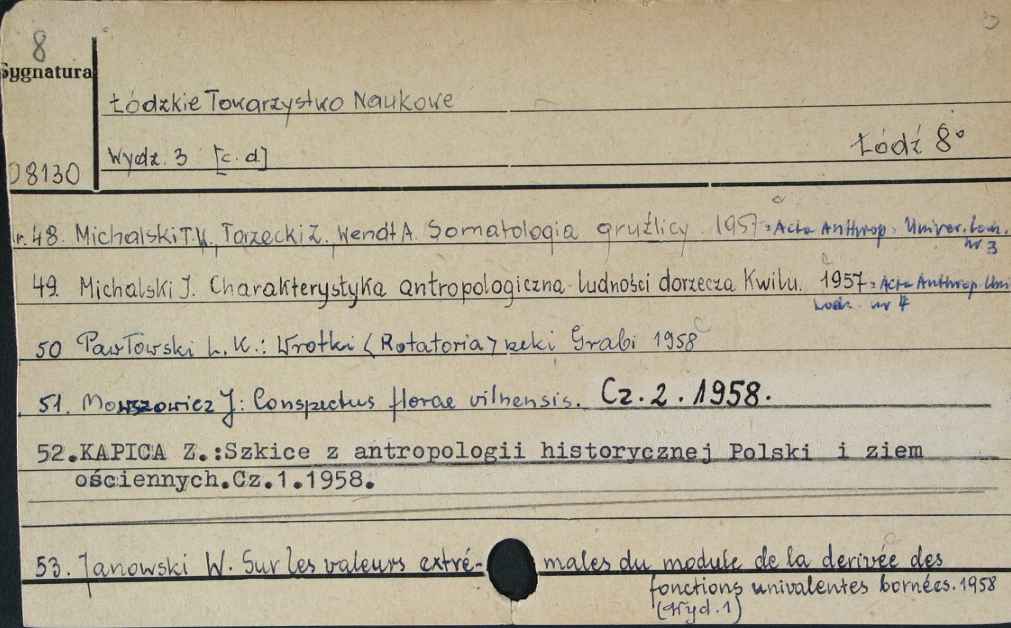 8
Sygnatura
Łódzkie Towarzystwo Naukowe
Wydz. 3 [c. d]
Łódź 8°
D8130
nr. 48. Michalski T.W., Torzecki Z. Wendt A. Somatologia gruźlicy. 1957 = Acta Anthrop. Univer. Lom.
nr 3
49. Michalski J. Charakterystyka antropologiczna ludności dorzecza Kwilu. 1957 = Acta Anthrop. Uni
Lodz. nr 4
50 Pawłowski L. K.: Wrotki <Rotatoria> rzeki Grabi 1958
51. Mowszowicz J: Conspectus florae vilnensis. Cz. 2. 1958.
52. KAPICA Z.: Szkice z antropologii historycznej Polski i ziem
ościennych. Cz. 1. 1958.
53. Janowski W. Sur les valeurs extré- males du module de la derivée des
fonctions univalentes bornées. 1958
(Wyd. 1)